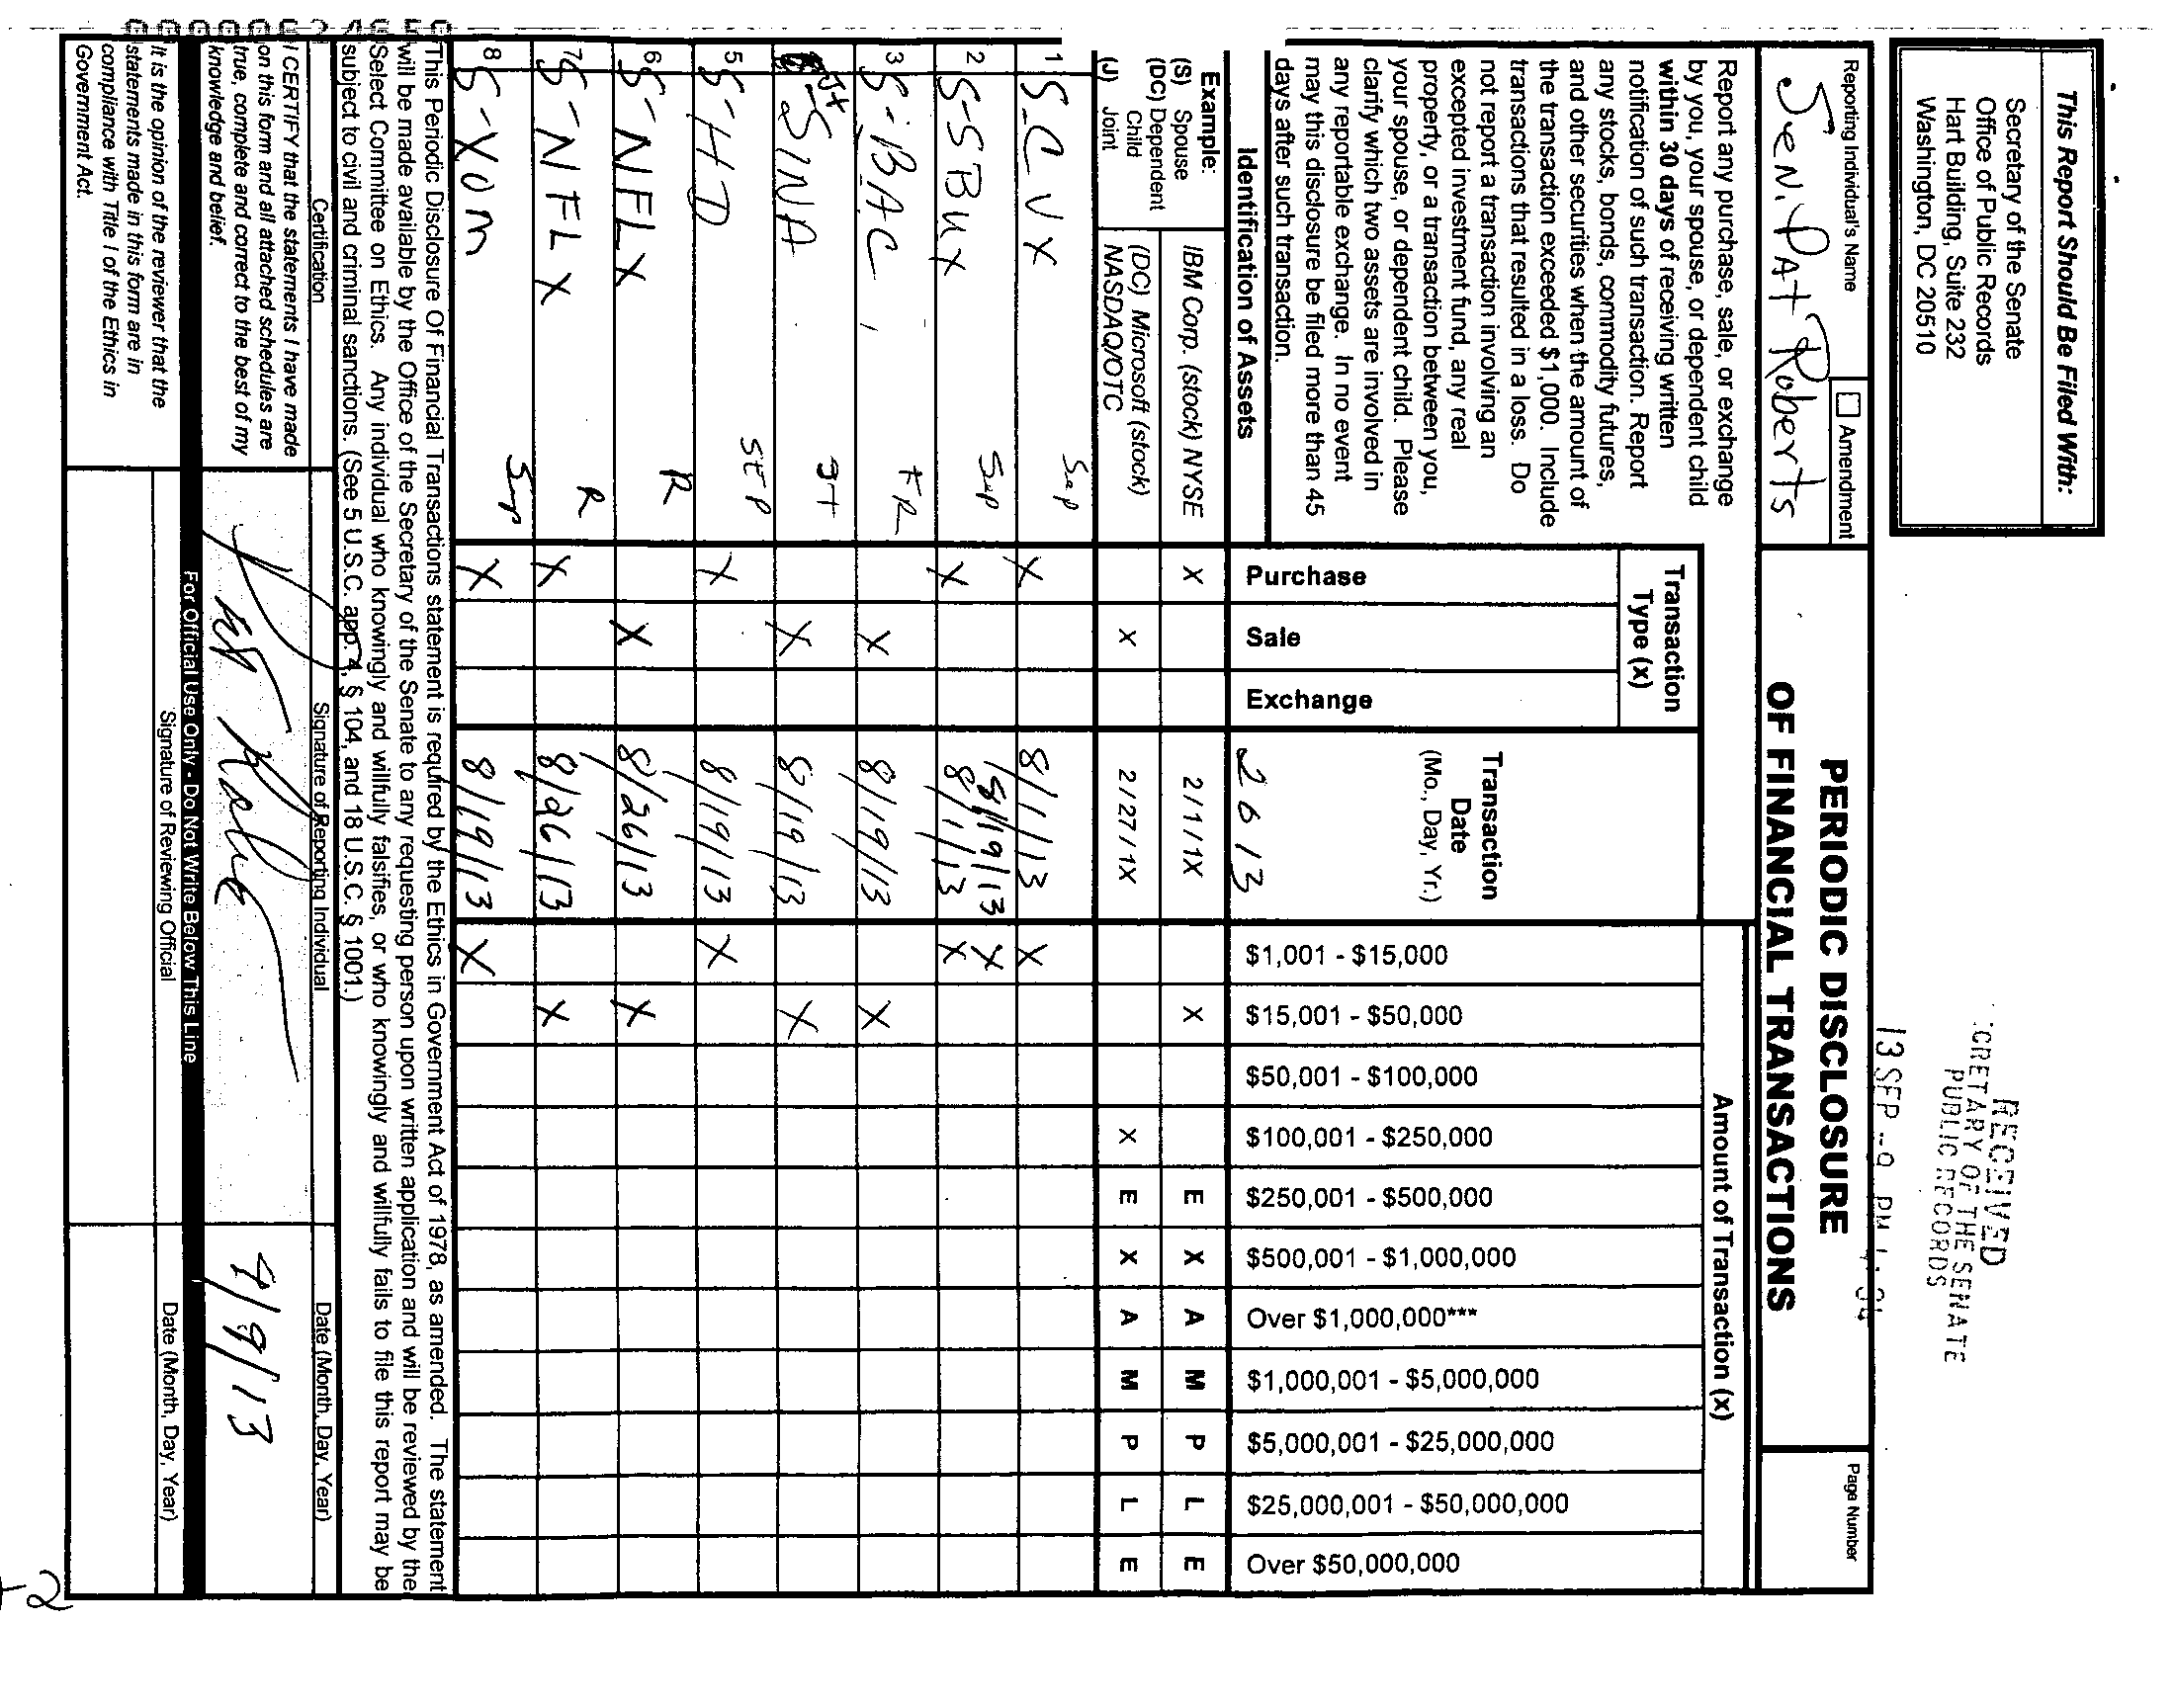 This Report Should Be Filed With:
Secretary of the Senate
Office of Public Records
Hart Building, Suite 232
Washington, DC 20510
RECEIVED
CRETARY OF THE SENATE
PUBLIC RECORDS
13 SEP -9 PM
Reporting Individual's Name
Sen. Pat Roberts
Amendment
PERIODIC DISCLOSURE
OF FINANCIAL TRANSACTIONS
Page Number
Report any purchase, sale, or exchange
by you, your spouse, or dependent child
within 30 days of receiving written
notification of such transaction. Report
any stocks, bonds, commodity futures,
and other securities when the amount of
the transaction exceeded $1,000. Include
transactions that resulted in a loss. Do
not report a transaction involving an
excepted investment fund, any real
property, or a transaction between you,
your spouse, or dependent child. Please
clarify which two assets are involved in
any reportable exchange. In no event
may this disclosure be filed more than 45
days after such transaction.
Identification of Assets
Transaction
Type (x)
Purchase
Sale
Exchange
Transaction
Date
(Mo., Day, Yr.)
2013
Amount of Transaction (x)
$1,001 - $15,000
$15,001 - $50,000
$50,001 - $100,000
$100,001 - $250,000
$250,001 - $500,000
$500,001 - $1,000,000
Over $1,000,000***
$1,000,001 - $5,000,000
$5,000,001 - $25,000,000
$25,000,001 - $50,000,000
Over $50,000,000
Example:
(S) Spouse
(DC) Dependent
Child
(J) Joint
IBM Corp. (stock) NYSE X 2/1/1X X E X A M P L E
(DC) Microsoft (stock)
NASDAQ/OTC X 2/27/1X X E X A M P L E
1 S-CVX Sep X 8/1/13 X
2 S-SBUX Sep X 8/19/13 X
8/1/13 X
3 S-BAC X 8/19/13 X
SINA Jt X 8/19/13 X
5 S-HD SEP X 8/19/13 X
6 S-NFLX R X 8/26/13 X
7 S-NFLX R X 8/26/13 X
8 S-XOM Sep X 8/19/13 X
This Periodic Disclosure Of Financial Transactions statement is required by the Ethics in Government Act of 1978, as amended. The statement
will be made available by the Office of the Secretary of the Senate to any requesting person upon written application and will be reviewed by the
Select Committee on Ethics. Any individual who knowingly and willfully falsifies, or who knowingly and willfully fails to file this report may be
subject to civil and criminal sanctions. (See 5 U.S.C. app. 4, § 104, and 18 U.S.C. § 1001.)
Certification
Signature of Reporting Individual
Date (Month, Day, Year)
I CERTIFY that the statements I have made
on this form and all attached schedules are
true, complete and correct to the best of my
knowledge and belief.
9/9/13
For Official Use Only - Do Not Write Below This Line
It is the opinion of the reviewer that the
statements made in this form are in
compliance with Title I of the Ethics in
Government Act.
Signature of Reviewing Official
Date (Month, Day, Year)